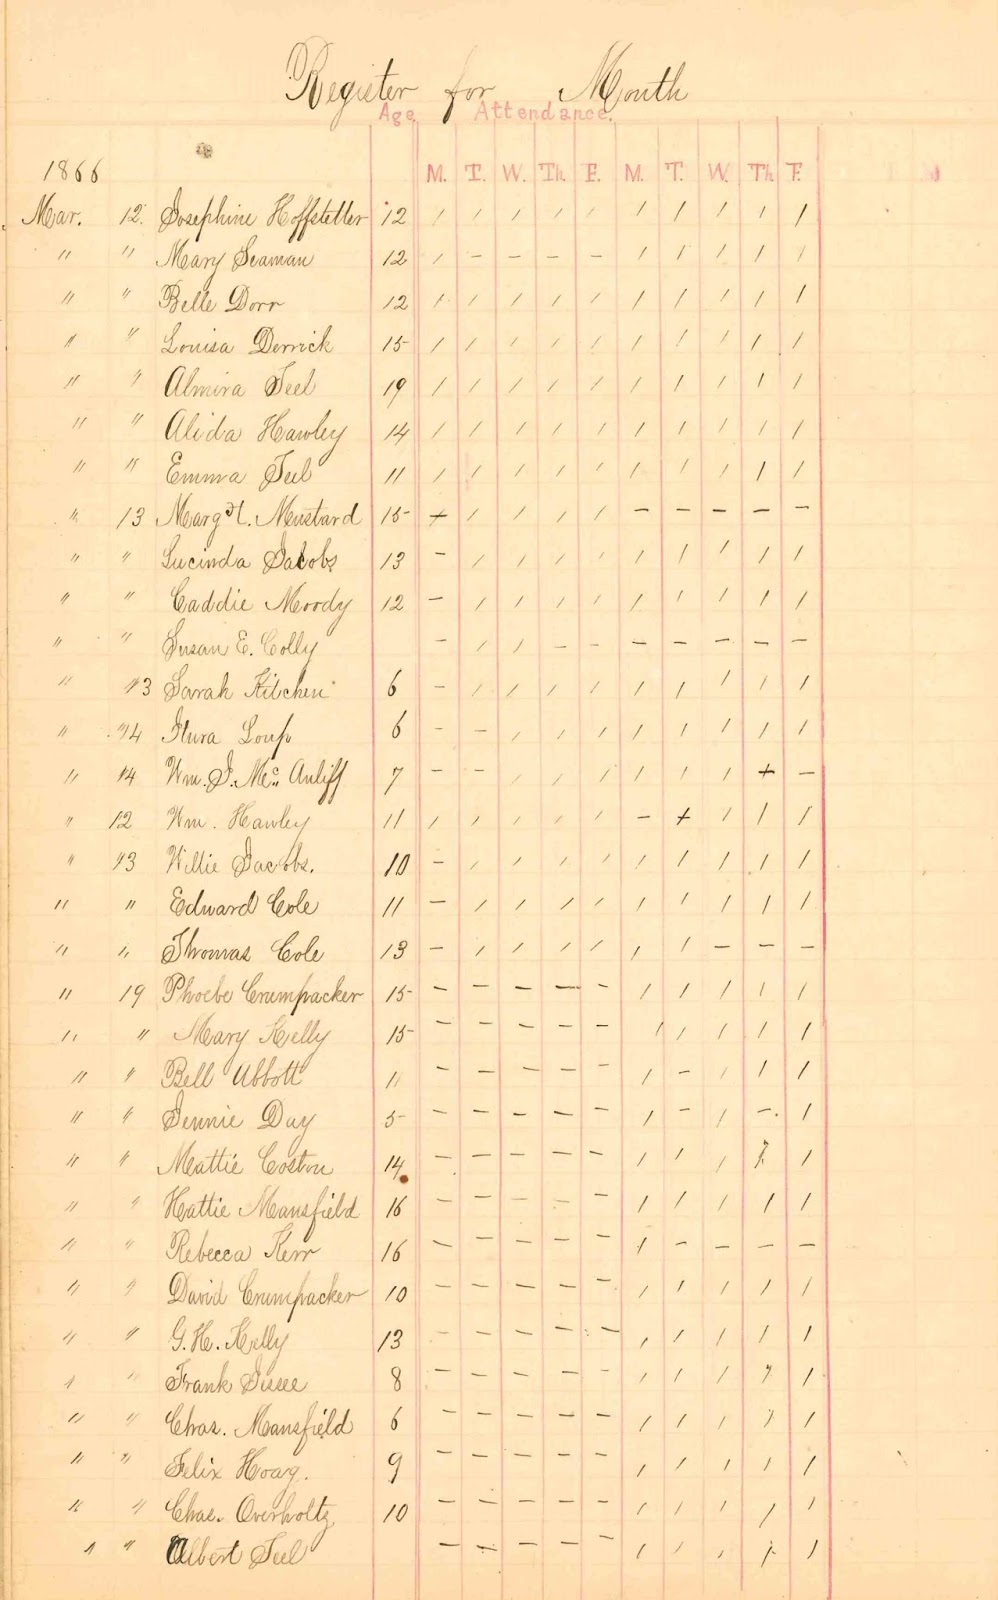 Register for Month
Age. Attendance.
1866 M. T. W. Th. F. M. T. W. Th F.
Mar. 12. Josephine Hoffstetter 12 / / / / / / / / / /
" " Mary Seaman 12 / – – – – / / / / /
" " Belle Dorr 12 / / / / / / / / / /
" " Louisa Derrick 15 / / / / / / / / / /
" " Almira Teel 19 / / / / / / / / / /
" " Alida Hawley 14 / / / / / / / / / /
" " Emma Teel 11 / / / / / / / / / /
" 13 Margt. Mustard 15 + / / / / – – – – –
" " Lucinda Jacobs 13 – / / / / / / / / /
" " Caddie Moody 12 – / / / / / / / / /
" " Susan E. Colly – / / – – – – – – –
" 13 Sarah Kitchen 6 – / / / / / / / / /
" 14 Loup 6 – – / / / / / / / /
" 14 Wm. J. Mc. Auliff 7 – – / / / / / / + –
" 12 Wm. Hawley 11 / / / / / – + / / /
" 13 Willie Jacobs. 10 – / / / / / / / / /
" " Edward Cole 11 – / / / / / / / / /
" " Thomas Cole 13 – / / / / / / – – –
" 19 Phoebe Crumpacker 15 – – – – – / / / / /
" " Mary Kelly 15 – – – – – / / / / /
" " Bell Abbott 11 – – – – – / – / / /
" " Jennie Day 5 – – – – – / – / – /
" " Mattie Coston 14 – – – – – / / / /
" " Hattie Mansfield 16 – – – – – / / / / /
" " Rebecca Kerr 16 – – – – – / – – – –
" " David Crumpacker 10 – – – – – / / / / /
" " G. H. Kelly 13 – – – – – / / / / /
" " Frank 8 – – – – – / / / / /
" " Chas. Mansfield 6 – – – – – / / / / /
" " Felix Hoag. 9 – – – – – / / / / /
" " Chas. Overholtz 10 – – – – – / / / / /
" " Albert Teel – – – – – / / / / /